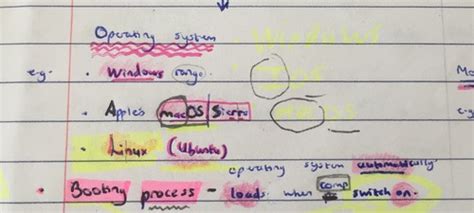 Operating system
e.g. • Windows range.
• Apple's macOS Sierra
• Linux (Ubuntu)
• Booting process - operating system automatically
loads when comp switch on.
e.g